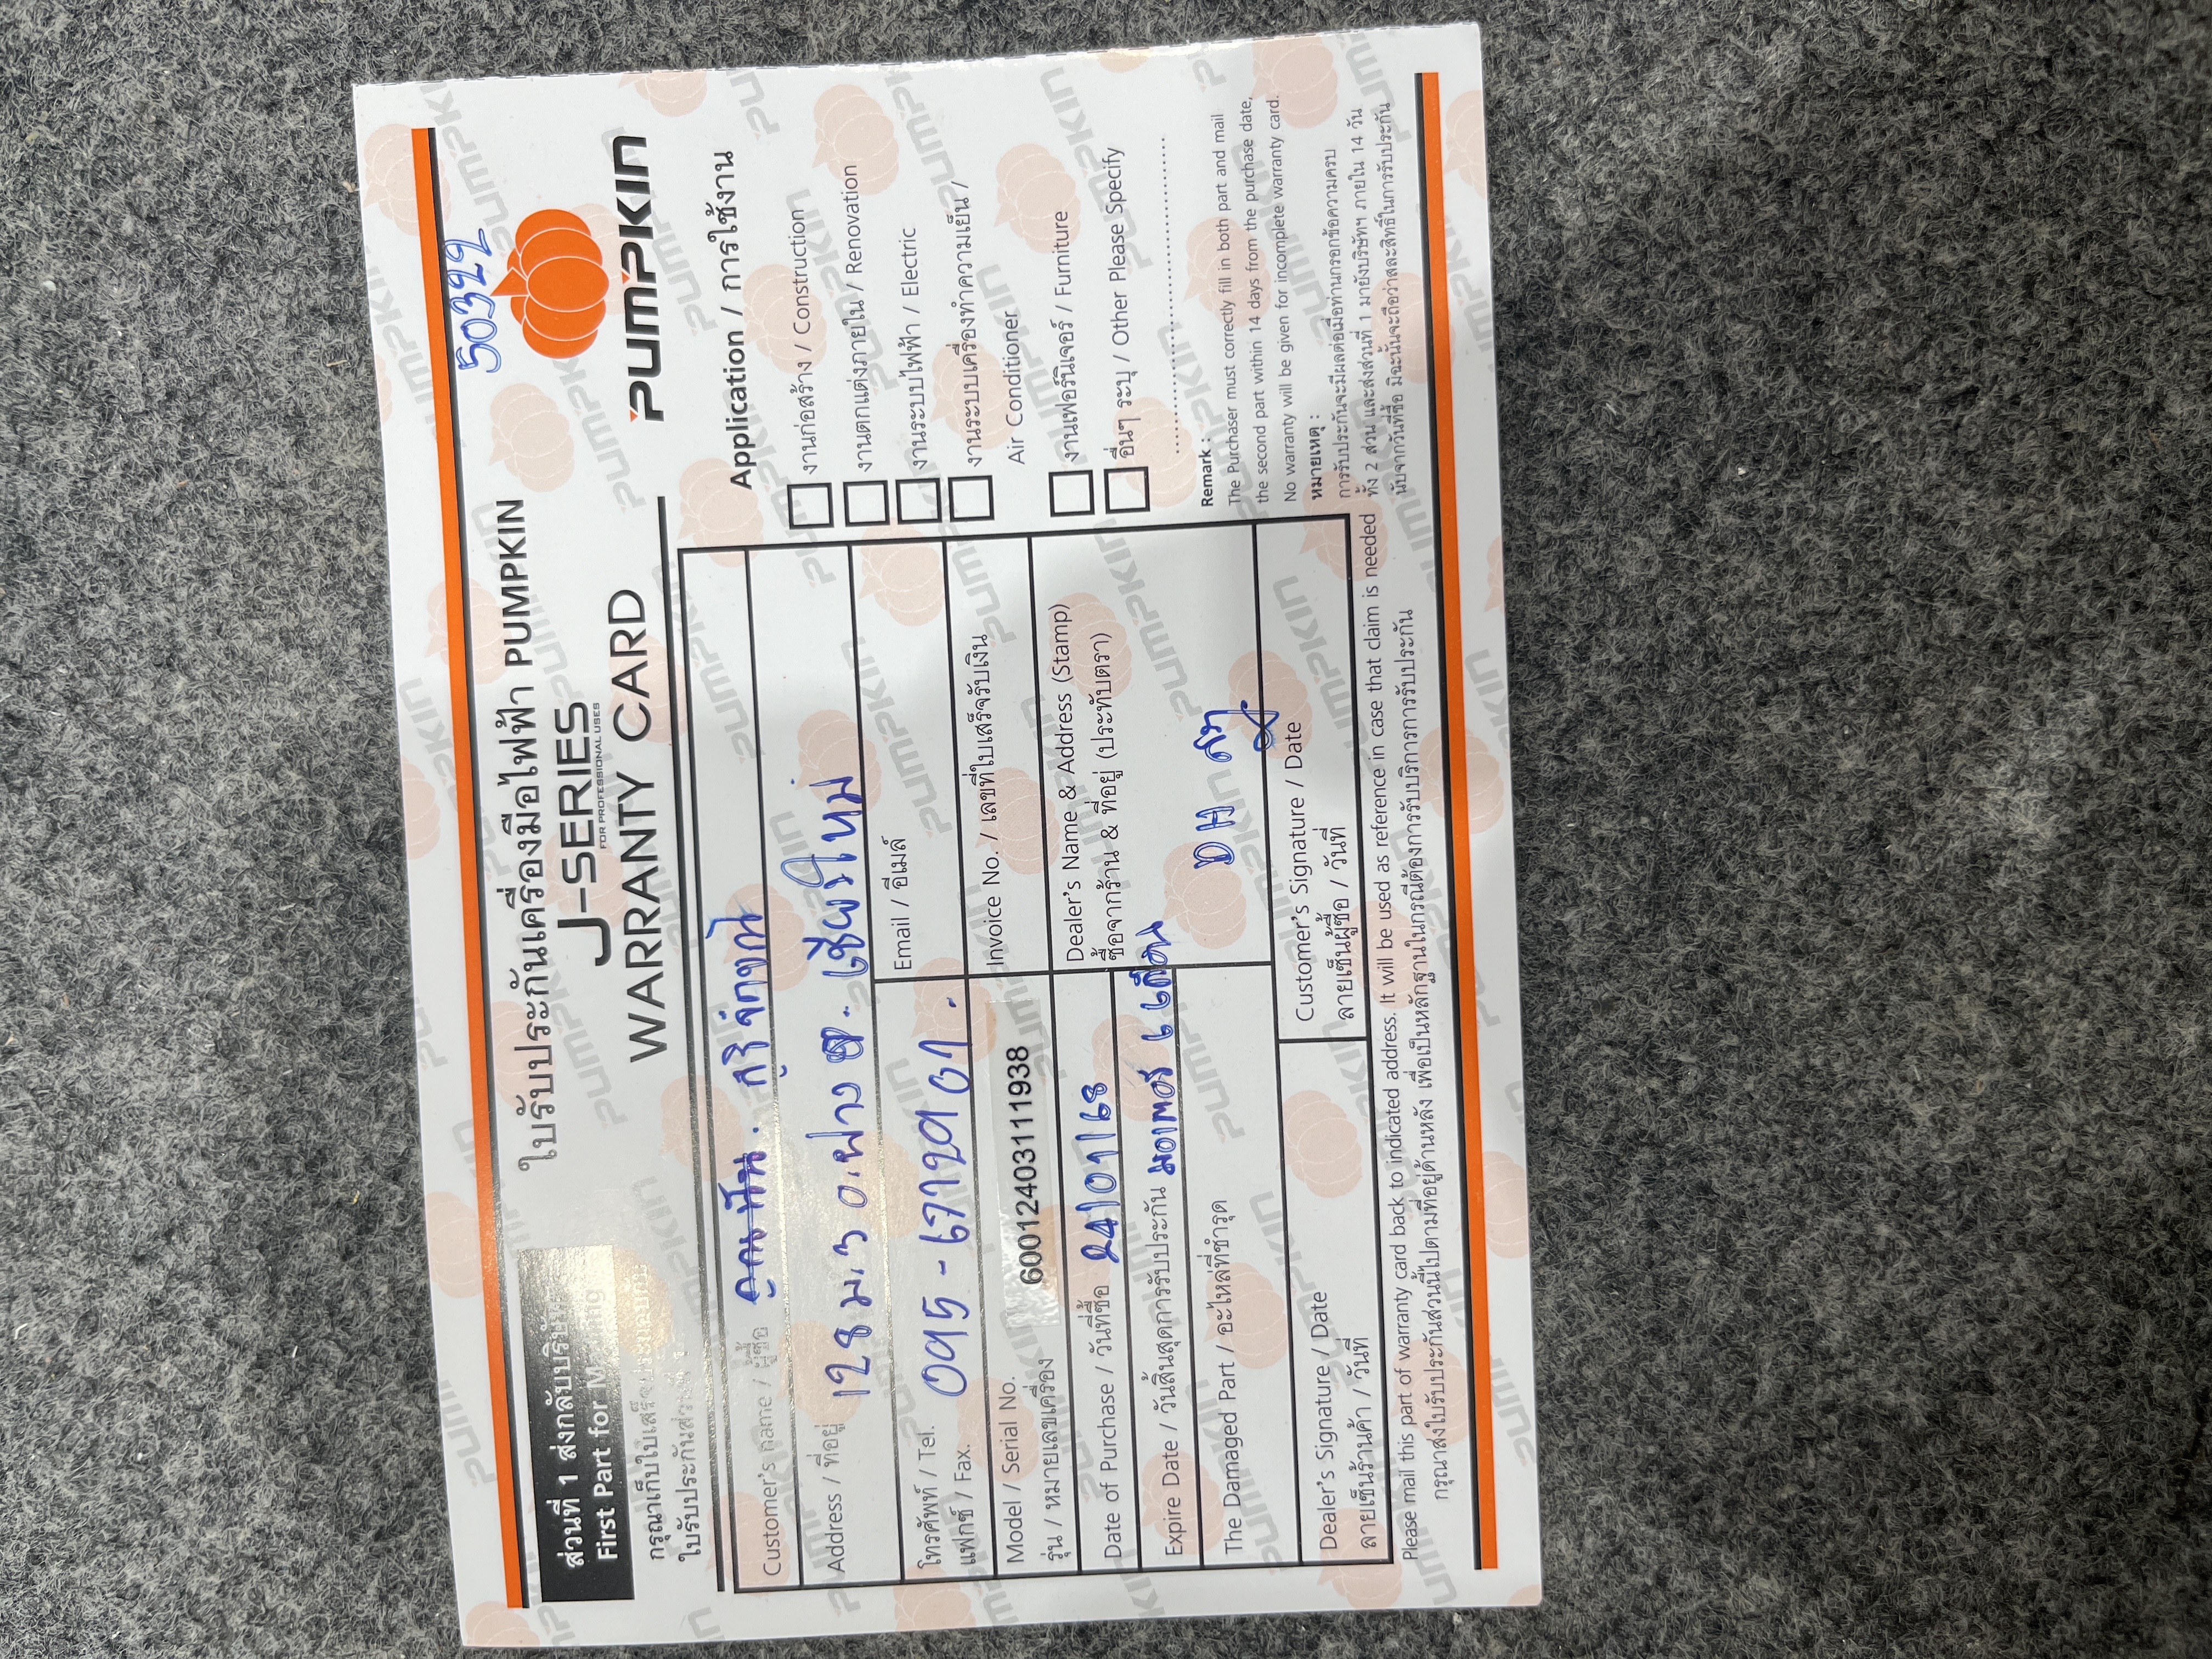 50322
ใบรับประกันเครื่องมือไฟฟ้า PUMPKIN
J-SERIES
FOR PROFESSIONAL USES
WARRANTY CARD
PUMPKIN
ส่วนที่ 1 ส่งกลับบริษัท
First Part for M
กรุณาเก็บใบเสร็จ
ใบรับประกันส่วน
Customer's name / ผู้ซื้อ
Address / ที่อยู่ 128 ม.3 อ.ฝาง จ. เชียงใหม่
โทรศัพท์ / Tel. 095-6712961.
แฟกซ์ / Fax.
Email / อีเมล์
Model / Serial No. 6001240311119​38
รุ่น / หมายเลขเครื่อง
Invoice No. / เลขที่ใบเสร็จรับเงิน
Date of Purchase / วันที่ซื้อ 24/01/68
Dealer's Name & Address (Stamp)
ซื้อจากร้าน & ที่อยู่ (ประทับตรา)
DH
Expire Date / วันสิ้นสุดการรับประกัน มอเตอร์ 6 เดือน
The Damaged Part / อะไหล่ที่ชำรุด
Dealer's Signature / Date
ลายเซ็นร้านค้า / วันที่
Customer's Signature / Date
ลายเซ็นผู้ซื้อ / วันที่
Application / การใช้งาน
งานก่อสร้าง / Construction
งานตกแต่งภายใน / Renovation
งานระบบไฟฟ้า / Electric
งานระบบเครื่องทำความเย็น /
Air Conditioner
งานเฟอร์นิเจอร์ / Furniture
อื่นๆ ระบุ / Other Please Specify
Remark :
The Purchaser must correctly fill in both part and mail
the second part within 14 days from the purchase date,
No warranty will be given for incomplete warranty card.
หมายเหตุ :
การรับประกันจะมีผลต่อเมื่อท่านกรอกข้อความครบ
ทั้ง 2 ส่วน และส่งส่วนที่ 1 มายังบริษัทฯ ภายใน 14 วัน
นับจากวันที่ซื้อ มิฉะนั้นจะถือว่าสละสิทธิ์ในการรับประกัน
Please mail this part of warranty card back to indicated address. It will be used as reference in case that claim is needed
กรุณาส่งใบรับประกันส่วนนี้ไปตามที่อยู่ด้านหลัง เพื่อเป็นหลักฐานในกรณีต้องการรับบริการการรับประกัน